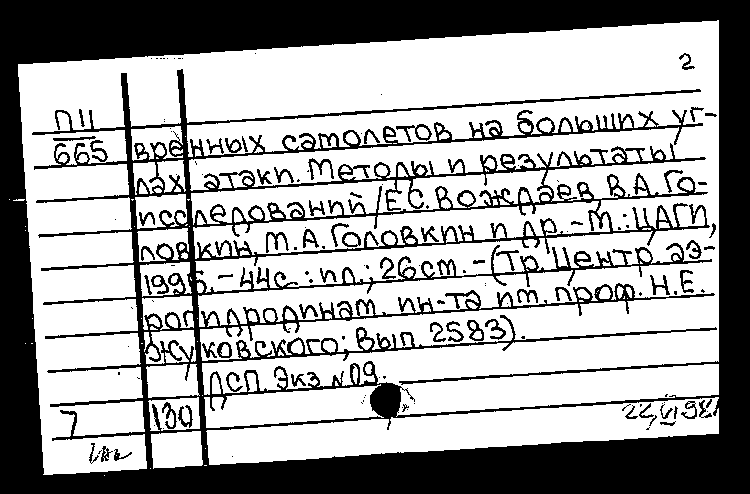 2
П11
665
временных самолетов на больших уг-
лах атаки. Методы и результаты
исследований/Е.С. Вождаев, В.А. Го-
ловкин, М.А. Головкин и др. - М.: ЦАГИ,
1995. - 44с. : ил.; 26см. - (Тр. Центр. аэ-
рогидродинам. ин-та им. проф. Н.Е.
Жуковского; Вып. 2583).
ДСП. Экз №09.
7 130
22.VI.98